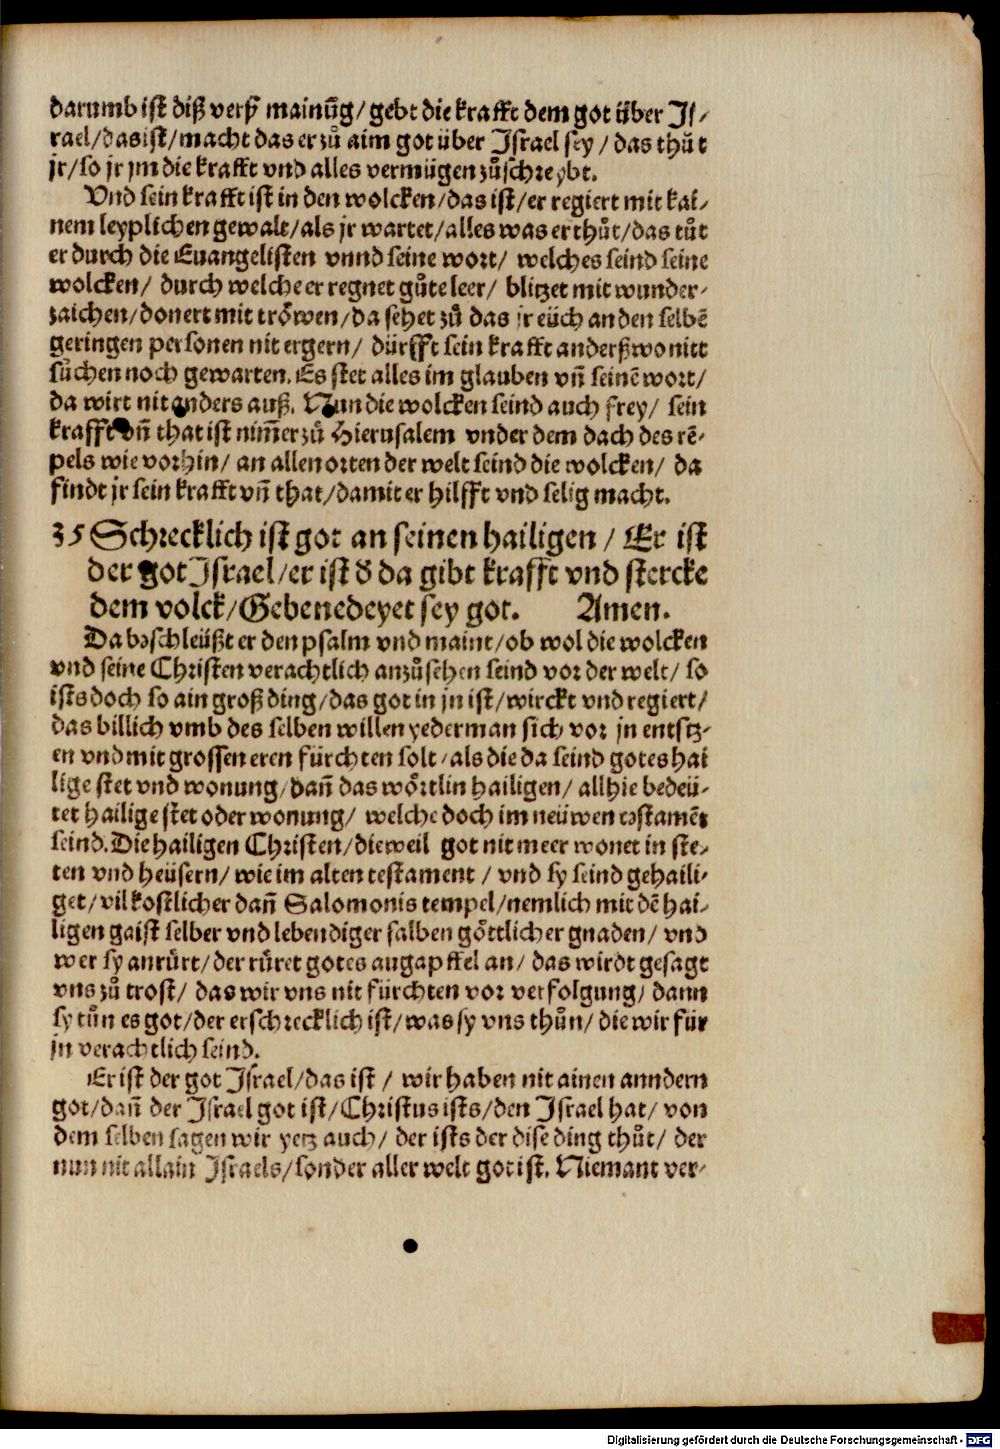 darumb ist diß verß mainūg/ gebt die krafft dem got über Is⸗
rael/ das ist/ macht das er zů aim got über Israel sey/ das thůt
jr/ so jr jm die krafft vnd alles vermügen zůschreybt.
Vnd sein krafft ist in den wolcken/ das ist/ er regiert mit kai⸗
nem leyplichen gewalt/ als jr wartet/ alles was er thůt/ das tůt
er durch die Euangelisten vnnd seine wort/ welches seind seine
wolcken/ durch welche er regnet gůte leer/ blitzet mit wunder⸗
zaichen/ donert mit tröwen/ da sehet zů das jr eüch an den selbē
geringen personen nit ergern/ dürfft sein krafft anderßwo nitt
sůchen noch gewarten. Es stet alles im glauben vn̄ seinē wort/
da wirt nit anders auß. Nun die wolcken seind auch frey/ sein
krafft vn̄ that ist nim̄er zů Hierusalem vnder dem dach des tē⸗
pels wie vorhin/ an allen orten der welt seind die wolcken/ da
findt jr sein krafft vn̄ that/ damit er hilfft vnd selig macht.
35 Schrecklich ist got an seinen hailigen/ Er ist
der got Israel/ er ist d̄ da gibt krafft vnd stercke
dem volck/ Gebenedeyet sey got. Amen.
Da beschleüßt er den psalm vnd maint/ ob wol die wolcken
vnd seine Christen verachtlich anzůsehen seind vor der welt/ so
ists doch so ain groß ding/ das got in jn ist/ wirckt vnd regiert/
das billich vmb des selben willen yederman sich vor jn entsitz⸗
en vnd mit grossen eren fürchten solt/ als die da seind gotes hai
lige stet vnd wonung/ dan̄ das wörtlin hailigen/ allhie bedeü⸗
tet hailige stet oder wonung/ welche doch im neüwen testamēt
seind. Die hailigen Christen/ dieweil got nit meer wonet in ste⸗
ten vnd heüsern/ wie im alten testament/ vnd sy seind gehaili⸗
get/ vil kostlicher dan̄ Salomonis tempel/ nemlich mit dē hai⸗
ligen gaist selber vnd lebendiger salben göttlicher gnaden/ vnd
wer sy anrürt/ der rüret gotes augapffel an/ das wirdt gesagt
vns zů trost/ das wir vns nit fürchten vor verfolgung/ dann
sy tůn es got/ der erschrecklich ist/ was sy vns thůn/ die wir für
jn verachtlich seind.
Er ist der got Israel/ das ist/ wir haben nit ainen anndern
got/ dan̄ der Israel got ist/ Christus ists/ den Israel hat/ von
dem selben sagen wir yetz auch/ der ists der dise ding thůt/ der
nun nit allain Israels/ sonder aller welt got ist. Niemant ver⸗
Digitalisierung gefördert durch die Deutsche Forschungsgemeinschaft - DFG